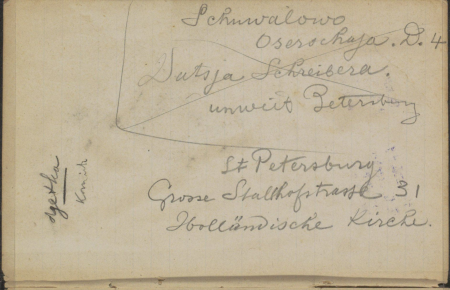 Schuwalowo
Oserschaja. D. 4
Datsja Schreibera.
unweit Petersburg
St Petersburg
Grosse Stallhofstrasse 31
Holländische Kirche.